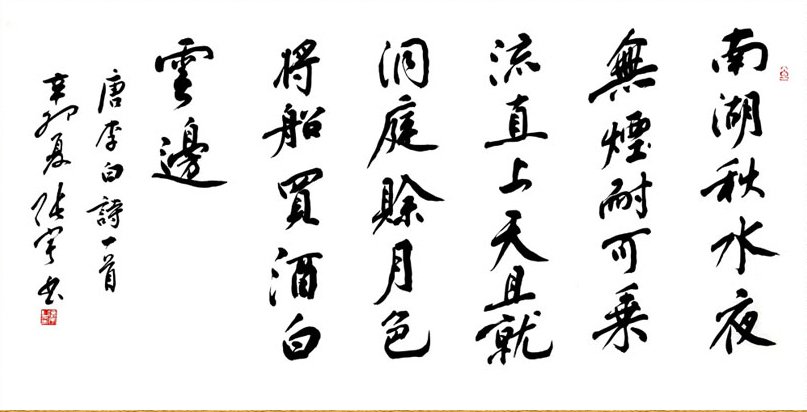 南湖秋水夜
無煙耐可乗
流直上天且就
洞庭賒月色
将船買酒白
雲邊
唐李白詩一首
辛卯夏張宇书